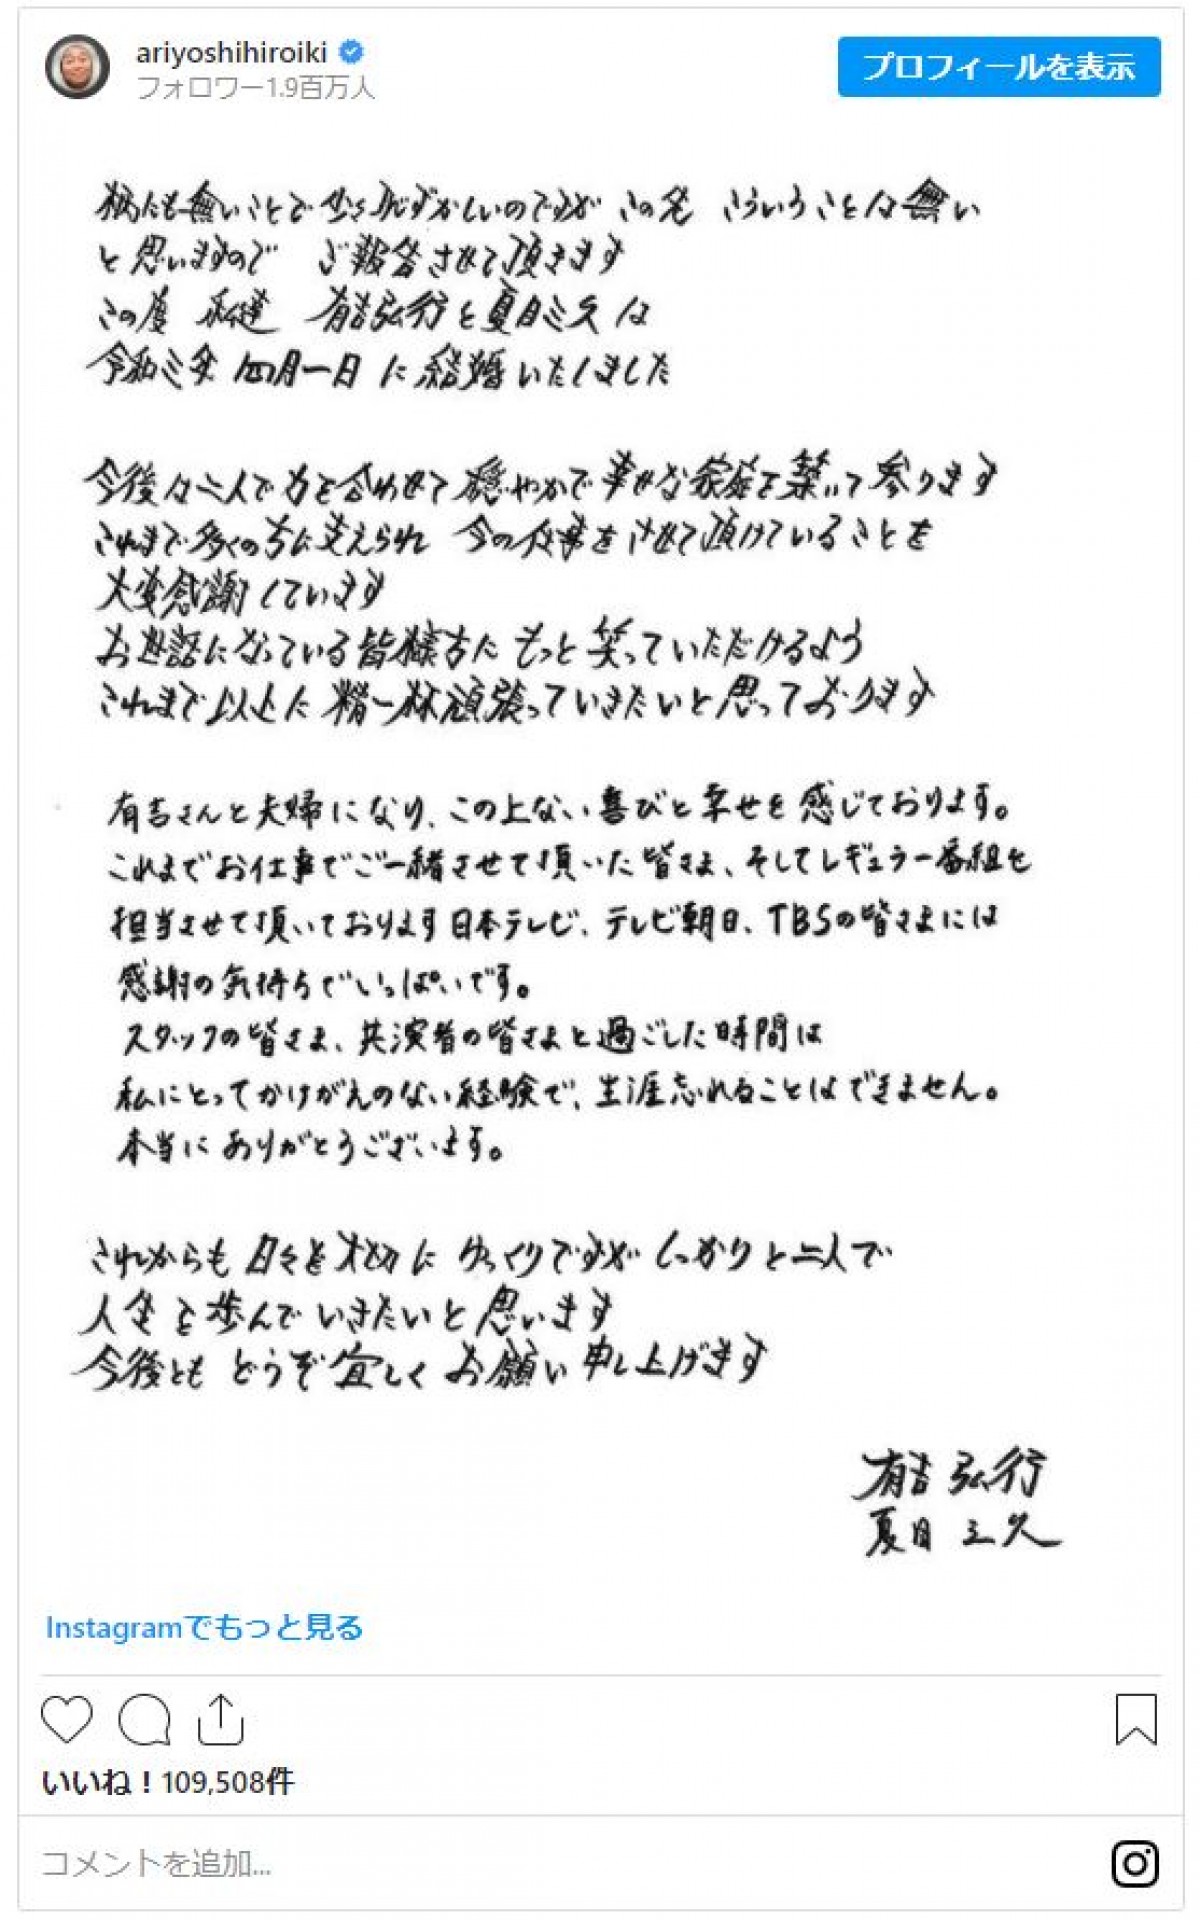 ariyoshihiroiki
フォロワー1.9百万人
プロフィールを表示
柄にも無いことで 少々恥ずかしいのですが この先 こういうことは無い
と思いますので ご報告させて頂きます
この度 私達 有吉弘行と夏目三久は
令和三年 四月一日に結婚いたしました
今後は二人で力を合わせて 穏やかで幸せな家庭を築いて参ります
これまで多くの方に支えられ 今の仕事をさせて頂けていることを
大変感謝しています
お世話になっている皆様方に もっと笑っていただけるよう
これまで以上に 精一杯頑張っていきたいと思っております
有吉さんと夫婦になり、この上ない喜びと幸せを感じております。
これまでお仕事でご一緒させて頂いた皆さま、そしてレギュラー番組を
担当させて頂いております日本テレビ、テレビ朝日、TBSの皆さまには
感謝の気持ちでいっぱいです。
スタッフの皆さま、共演者の皆さまと過ごした時間は
私にとってかけがえのない経験で、生涯忘れることはできません。
本当にありがとうございます。
これからも 日々を大切に ゆっくりですが しっかりと二人で
人生を歩んでいきたいと思います
今後とも どうぞ宜しく お願い申し上げます
有吉 弘行
夏目 三久
Instagramでもっと見る
いいね！109,508件
コメントを追加...